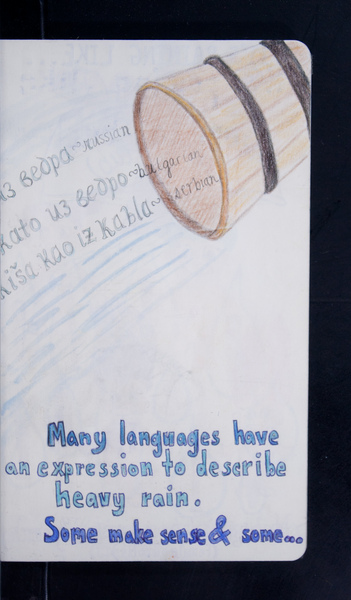 из ведра~russian
като из ведро~bulgarian
kiša kao iz kabla~serbian
Many languages have
an expression to describe
heavy rain.
Some make sense & some...